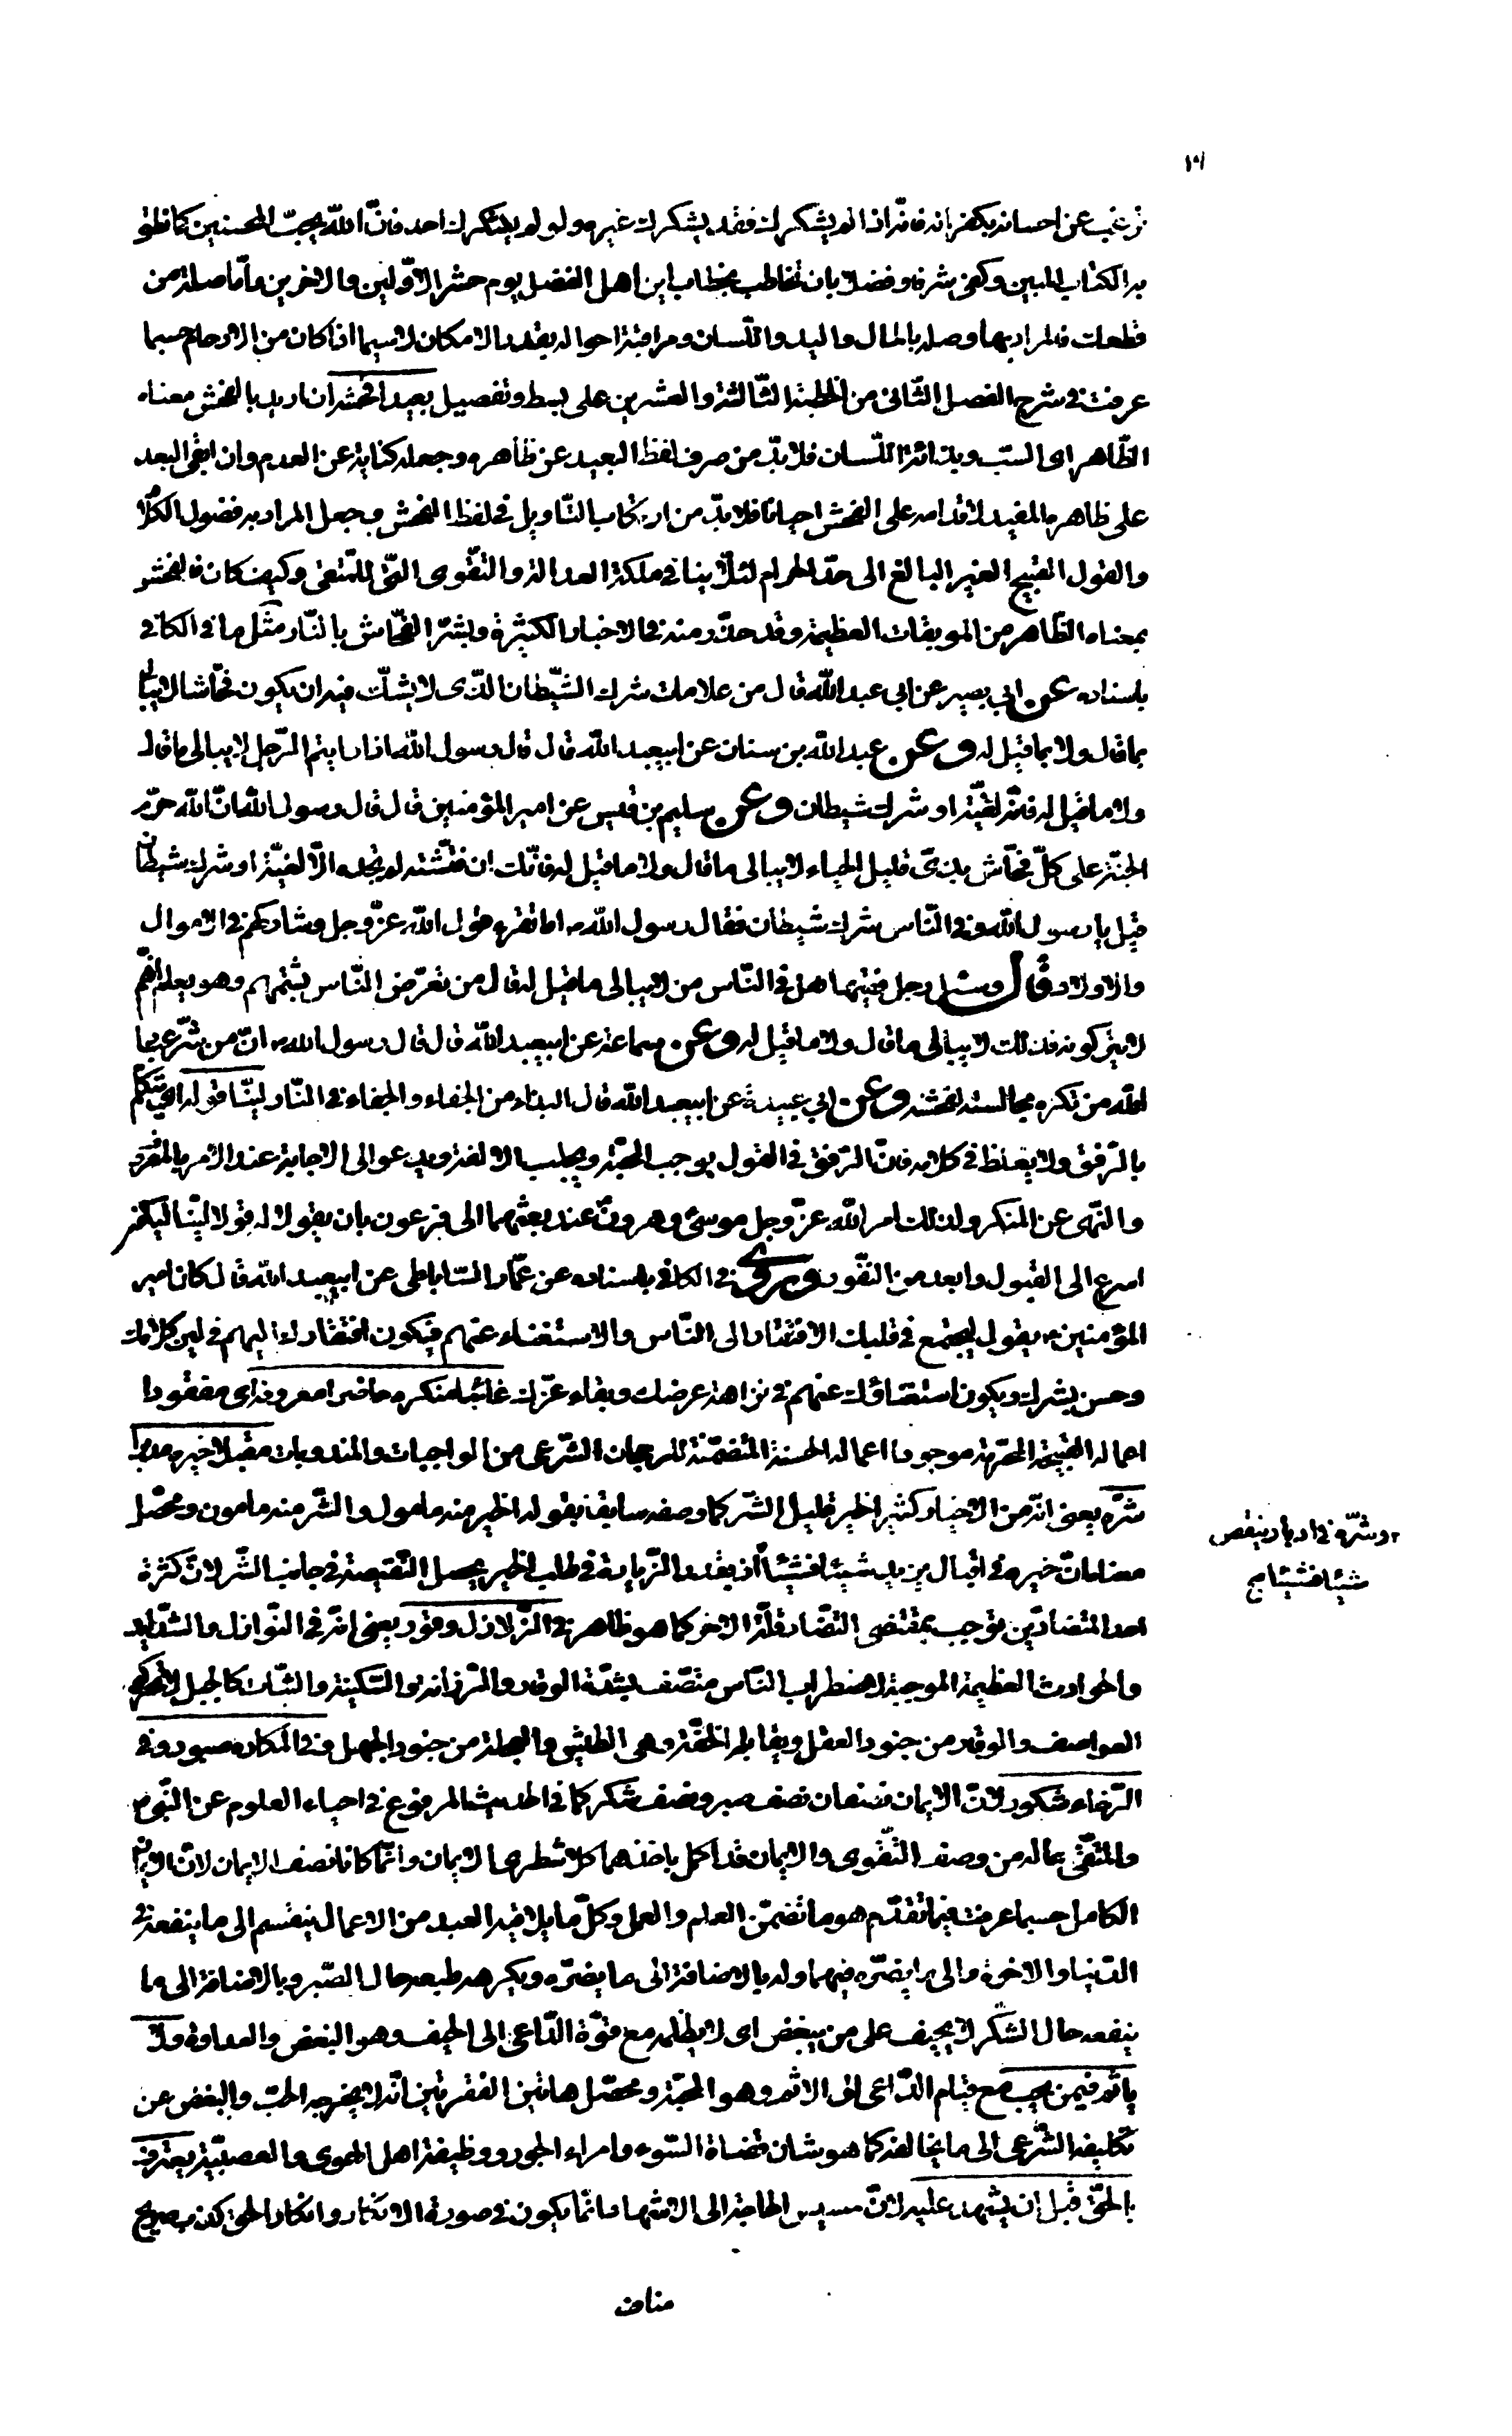 ترغب عن احسانه بكفرانه فانّه اذا لم يشكرك فقد يشكرك غيره ولو لم يشكرك احد فانّ الله يحبّ المحسنين كما نطق
به الكتاب المبين وكفى شرفا وفضلا بان تخاطب بخطاب اين اهل الفضل يوم حشر الاوّلين والاخرين وأمّا صلة من
قطعك فالمراد بها وصله بالمال واليد واللّسان ومراقبة احواله بقدر الامكان لا سيما اذا كان من الارحام حسبما
عرفت في شرح الفصل الثّاني من الخطبة الثّالثة والعشرين على بسط وتفصيل بعيدا فحشه ان اريد بالفحش معناه
الظّاهر اى السبّ وبذائة اللّسان فلا بدّ من صرف لفظ البعيد عن ظاهره وجعله كناية عن العدم وان ابقى البعد
على ظاهره المفيد لاقدامه على الفحش احيانا فلا بدّ من ارتكاب التّاويل في لفظ الفحش وجعل المراد به فضول الكلام
والقول القبيح الغير البالغ الى حدّ الحرام لئلّا ينافي ملكة العدالة والتقوى الّتي للمتّقي وكيف كان فالفحش
بمعناه الظّاهر من الموبقات العظيمة وقد حذّر منه في الاخبار الكثيرة وبشّر الفحّاش بالنّار مثل ما في الكافي
باسناده عن ابي بصير عن ابي عبد الله قال من علامات شرك الشّيطان الذّى لا يشكّ فيه ان يكون فحّاشا لا يبالي
بما قال ولا بما قيل له وعن عبد الله بن سنان عن ابيعبد الله قال قال رسول الله اذا رايتم الرّجل لا يبالى ما قال
ولا ما قيل له فانّه لغيّة او شرك شيطان وعن سليم بن قيس عن امير المؤمنين قال قال رسول الله انّ الله حرّم
الجنّة على كلّ فحّاش بذىّ قليل الحياء لا يبالى ما قال ولا ما قيل له فانّك ان فتّشته لم تجده الّا لغيّة او شرك شيطان
قيل يا رسول الله وفي النّاس شرك شيطان فقال رسول الله اما تقرء قول الله عزّ وجل وشاركهم في الاموال
والاولاد قال وسئل رجل فقيها هل في النّاس من لا يبالى ما قيل له قال من تعرّض النّاس يشتمهم وهو يعلم انّهم
لا يتركونه فذلك لا يبالى ما قال ولا ما قيل له وعن سماعة عن ابيعبد الله قال قال رسول الله انّ من شرّ عباد
الله من تكره مجالسته لفحشه وعن ابي عبيدة عن ابيعبد الله قال البذاء من الجفاء والجفاء في النّار ليّنا قوله اى يتكلّم
بالرّفق ولا يغلظ في كلامه فانّ الرّفق في القول يوجب المحبّة ويجلب الالفة ويدعو الى الاجابة عند الامر بالمعروف
والنّهى عن المنكر ولذلك امر الله عزّ وجل موسى وهرون عند بعثهما الى فرعون بان يقولا له قولا ليّنا ليكون
اسرع الى القبول وابعد من النفّور وروى في الكافي باسناده عن عمّار السّاباطى عن ابيعبد الله قال كان امير
المؤمنين يقول ليجتمع في قلبك الافتقار الى النّاس والاستغناء عنهم فيكون افتقارك اليهم في لين كلامك
وحسن بشرك ويكون استغناؤك عنهم في نزاهة عرضك وبقاء عزّك غائبا منكره حاضرا معروفه اى مفقودا
اعماله القبيحة المحرّمة موجودا اعماله الحسنة المتضمّنة للرجحان الشّرعى من الواجبات والمندوبات مقبلا خيره مدبرا
شرّه يعنى انّه من الاخيار كثير الخير قليل الشّر كما وصفه سابقا بقوله الخير منه مامول والشّر منه مامون ومحصّل
معناه انّ خيره في اقبال يزيد شيئا فشيئا اذ بقدر الزّيادة في طلب الخير يحصل النّقيصة في جانب الشّر لانّ كثرة
وشرّه في ادبار ينقص
شيئا فشيئا صح
احد المتضادّين يوجب بمقتضى التضّاد قلّة الاخر كما هو ظاهر في الزّلازل وقور يعنى انّه في النّوازل والشّدايد
والحوادث العظيمة الموجبة لاضطراب النّاس متصّف بشدّة الوقار والرّزانة والسّكينة والثّبات كالجبل لا تحرّكه
العواصف والوقار من جنود العقل ويقابله الخفّة وهى الطّيش والعجلة من جنود الجهل وفي المكاره صبور وفي
الرّخاء شكور لانّ الايمان نصفان نصف صبر ونصف شكر كما في الحديث المرفوع في احياء العلوم عن النّبيّ
والمتّقى بما له من وصف التّقوى والايمان قد اكمل باخذهما كلا شطرى الايمان وانّما كانا نصف الايمان لانّ الايمان
الكامل حسبما عرفت فيما تقدّم هو ما تضمّن العلم والعمل وكلّ ما يلاقيه العبد من الاعمال ينقسم الى ما ينفعه في
الدّنيا والاخرة والى ما يضرّه فيهما وله بالاضافة الى ما يضرّه ويكرهه طبعه حال الصّبر وبالاضافة الى ما
ينفعه حال الشكر لا يحيف على من يبغض اى لا يظلمه مع قوّة الدّاعى الى الحيف وهو البغض والعداوة ولا
ياثم فيمن يحبّ مع قيام الدّاعى الى الاثم وهو المحبّة ومحصّل هاتين الفقرتين انّه لا يخرجه الحبّ والبغض عن
تكليفه الشّرعى الى ما يخالفه كما هو شان قضاة السّوء وامراء الجور ووظيفة اهل الهوى والعصبيّة يعترف
بالحقّ قبل ان يشهد عليه لانّ مسيس الحاجة الى الاشهاد انّما يكون في صورة الانكار وانكار الحق كذب صريح
مناف